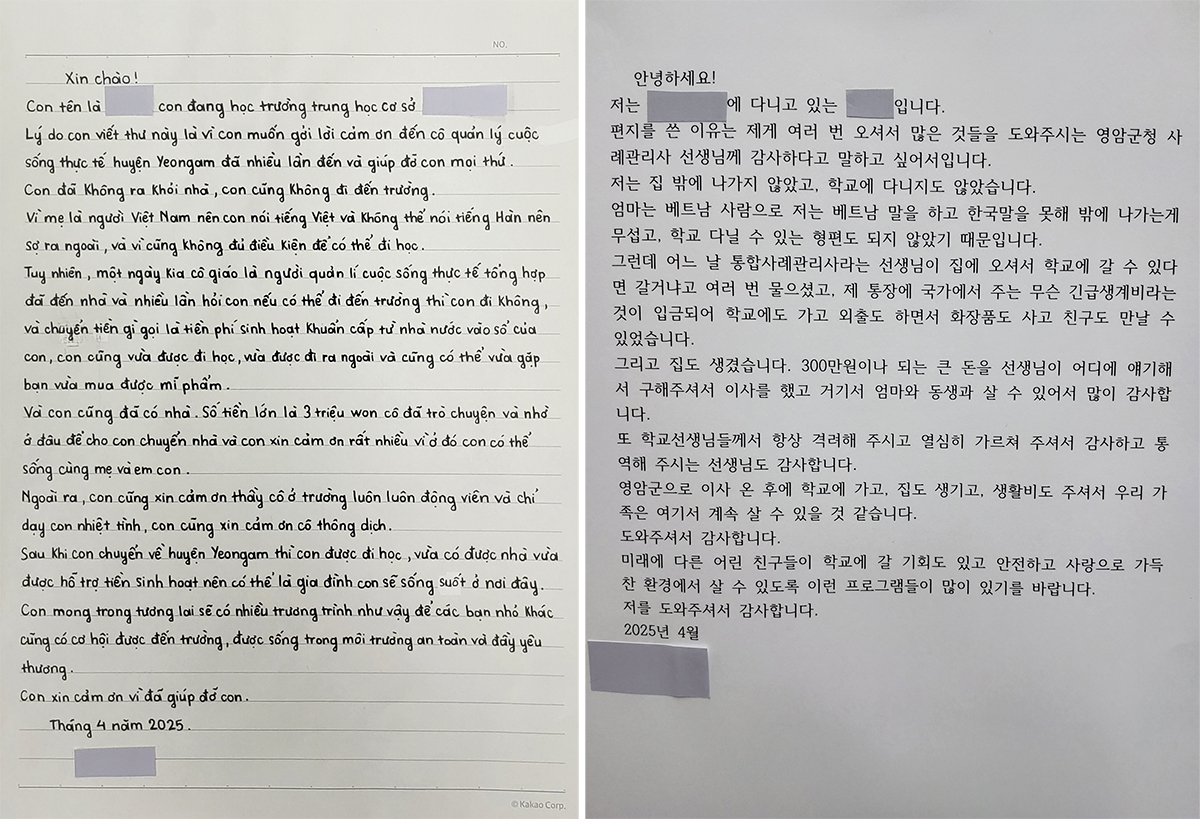 NO.
Xin chào!
Con tên là con đang học trường trung học cơ sở
Lý do con viết thư này là vì con muốn gởi lời cảm ơn đến cô quản lý cuộc
sống thực tế huyện Yeongam đã nhiều lần đến và giúp đỡ con mọi thứ.
Con đã không ra khỏi nhà, con cũng không đi đến trường.
Vì mẹ là người Việt Nam nên con nói tiếng Việt và không thể nói tiếng Hàn nên
sợ ra ngoài, và vì cũng không đủ điều kiện để có thể đi học.
Tuy nhiên, một ngày kia cô giáo là người quản lí cuộc sống thực tế tổng hợp
đã đến nhà và nhiều lần hỏi con nếu có thể đi đến trường thì con đi không,
và chuyện tiền gì gọi là tiền phí sinh hoạt khuẩn cấp từ nhà nước vào sổ của
con, con cũng vừa được đi học, vừa được đi ra ngoài và cũng có thể vừa gặp
bạn vừa mua được mĩ phẩm.
Và con cũng đã có nhà. Số tiền lớn là 3 triệu won cô đã trò chuyện và nhờ
ở đâu để cho con chuyển nhà và con xin cảm ơn rất nhiều vì ở đó con có thể
sống cùng mẹ và em con.
Ngoài ra, con cũng xin cảm ơn thầy cô ở trường luôn luôn động viên và chỉ
dạy con nhiệt tình, con cũng xin cảm ơn cô thông dịch.
Sau khi con chuyển về huyện Yeongam thì con được đi học, vừa có được nhà vừa
được hỗ trợ tiền sinh hoạt nên có thể là gia đình con sẽ sống suốt ở nơi đây.
Con mong trong tương lai sẽ có nhiều trương trình như vậy để các bạn nhỏ khác
cũng có cơ hội được đến trường, được sống trong môi trường an toàn và đầy yêu
thương.
Con xin cảm ơn vì đã giúp đỡ con.
Tháng 4 năm 2025.
© Kakao Corp.
안녕하세요!
저는 에 다니고 있는 입니다.
편지를 쓴 이유는 제게 여러 번 오셔서 많은 것들을 도와주시는 영암군청 사
례관리사 선생님께 감사하다고 말하고 싶어서입니다.
저는 집 밖에 나가지 않았고, 학교에 다니지도 않았습니다.
엄마는 베트남 사람으로 저는 베트남 말을 하고 한국말을 못해 밖에 나가는게
무섭고, 학교 다닐 수 있는 형편도 되지 않았기 때문입니다.
그런데 어느 날 통합사례관리사라는 선생님이 집에 오셔서 학교에 갈 수 있다
면 갈거냐고 여러 번 물으셨고, 제 통장에 국가에서 주는 무슨 긴급생계비라는
것이 입금되어 학교에도 가고 외출도 하면서 화장품도 사고 친구도 만날 수
있었습니다.
그리고 집도 생겼습니다. 300만원이나 되는 큰 돈을 선생님이 어디에 얘기해
서 구해주셔서 이사를 했고 거기서 엄마와 동생과 살 수 있어서 많이 감사합
니다.
또 학교선생님들께서 항상 격려해 주시고 열심히 가르쳐 주셔서 감사하고 통
역해 주시는 선생님도 감사합니다.
영암군으로 이사 온 후에 학교에 가고, 집도 생기고, 생활비도 주셔서 우리 가
족은 여기서 계속 살 수 있을 것 같습니다.
도와주셔서 감사합니다.
미래에 다른 어린 친구들이 학교에 갈 기회도 있고 안전하고 사랑으로 가득
찬 환경에서 살 수 있도록 이런 프로그램들이 많이 있기를 바랍니다.
저를 도와주셔서 감사합니다.
2025년 4월